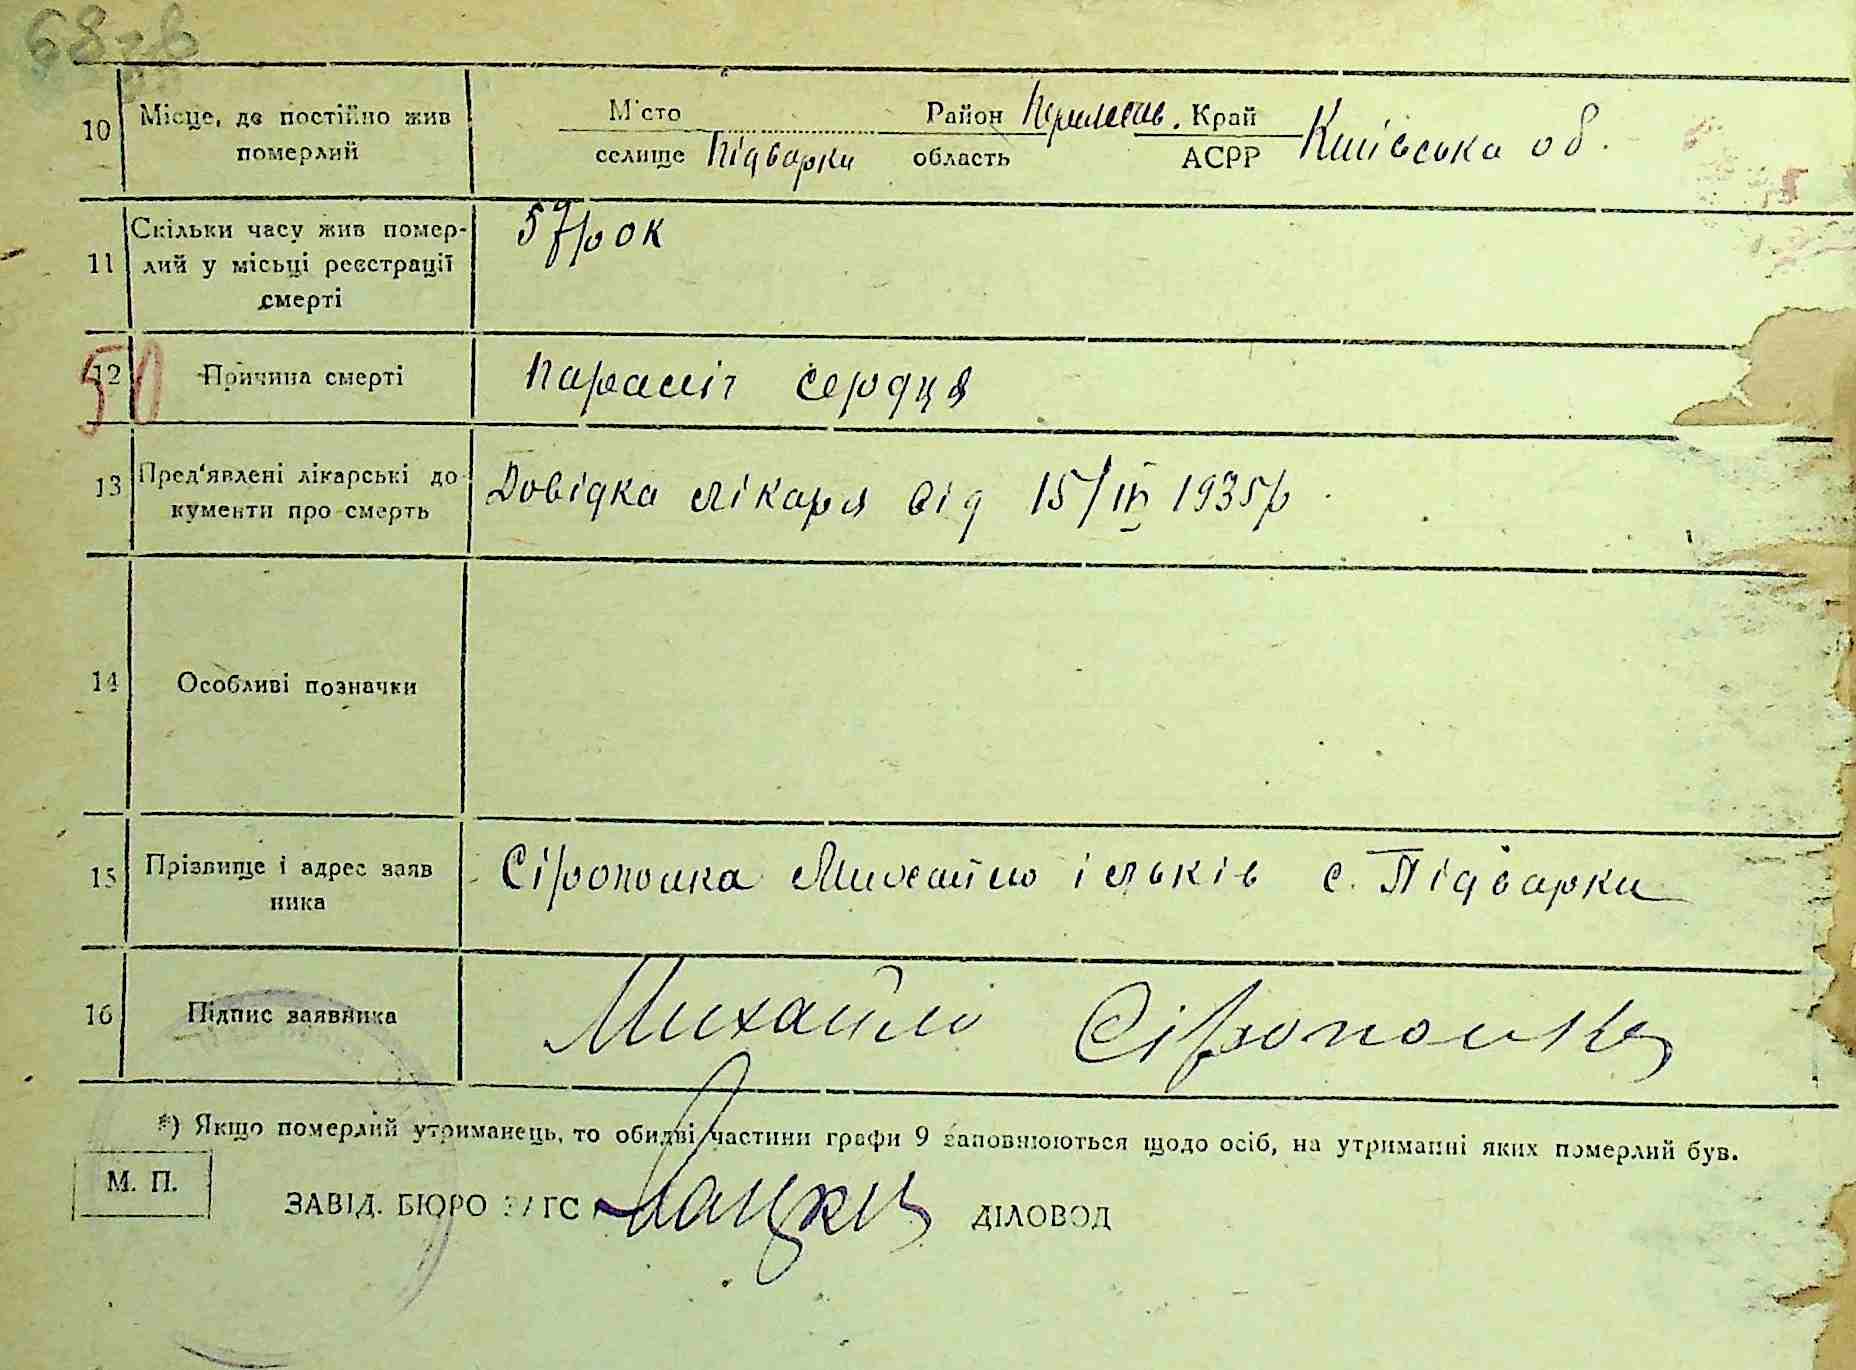 68зв
10 Місце, де постійно жив померлий
М'сто Район Край
селище Підварки область АСРР Київська об.
11 Скільки часу жив помер-
лий у місьці реєстрації
смерті
рок
50
12 Причина смерті параліч сердця
13 Пред'явлені лікарські до
кументи про смерть
Довідка лікаря від 15/ІІІ 1935р.
14 Особливі позначки
15 Прізвище і адрес заяв
ника
Сіропошка Михайло ільків с. Підварки
16 Підпис заявника Михайло Сіропошка
*) Якщо померлий утриманець, то обидві частини графи 9 заповнюються щодо осіб, на утриманні яких померлий був.
М. П.
ЗАВІД. БЮРО ЗАГС ДІЛОВОД